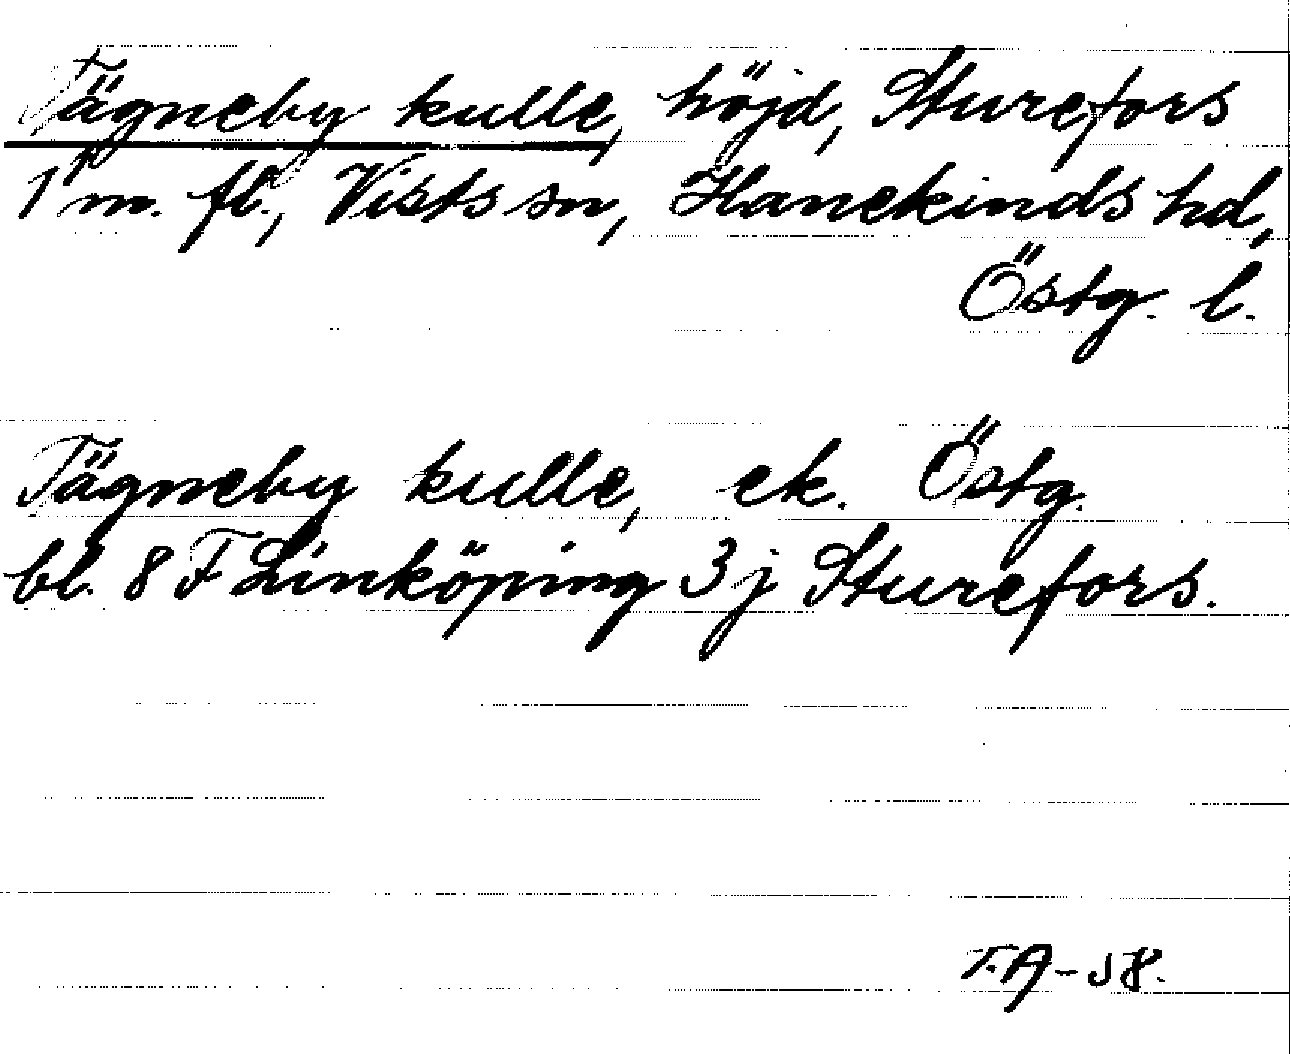 Tägneby kulle, höjd, Sturefors
1 m. fl., Vists sn, Hanekinds hd,
Östg. l.
Tägneby kulle, ek. Östg.
bl. 8 F Linköping 3 j Sturefors.
T.A-58.